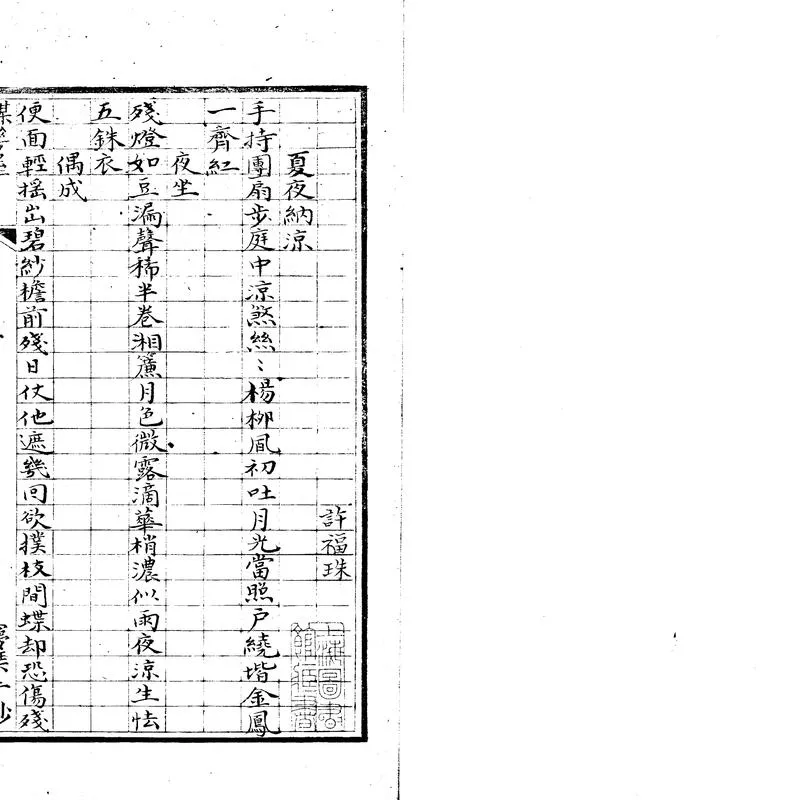 許福珠
夏夜納涼
手持團扇步庭中涼煞絲〻楊柳風初吐月光當照戶繞堦金鳳
一齊紅
夜坐
殘燈如豆漏聲稀半卷湘簾月色微露滴華梢濃似雨夜涼生怯
五銖衣
偶成
便面輕摇出碧紗檐前殘日仗他遮幾回欲撲枝間蝶却恐傷殘
上海圖書
館藏書